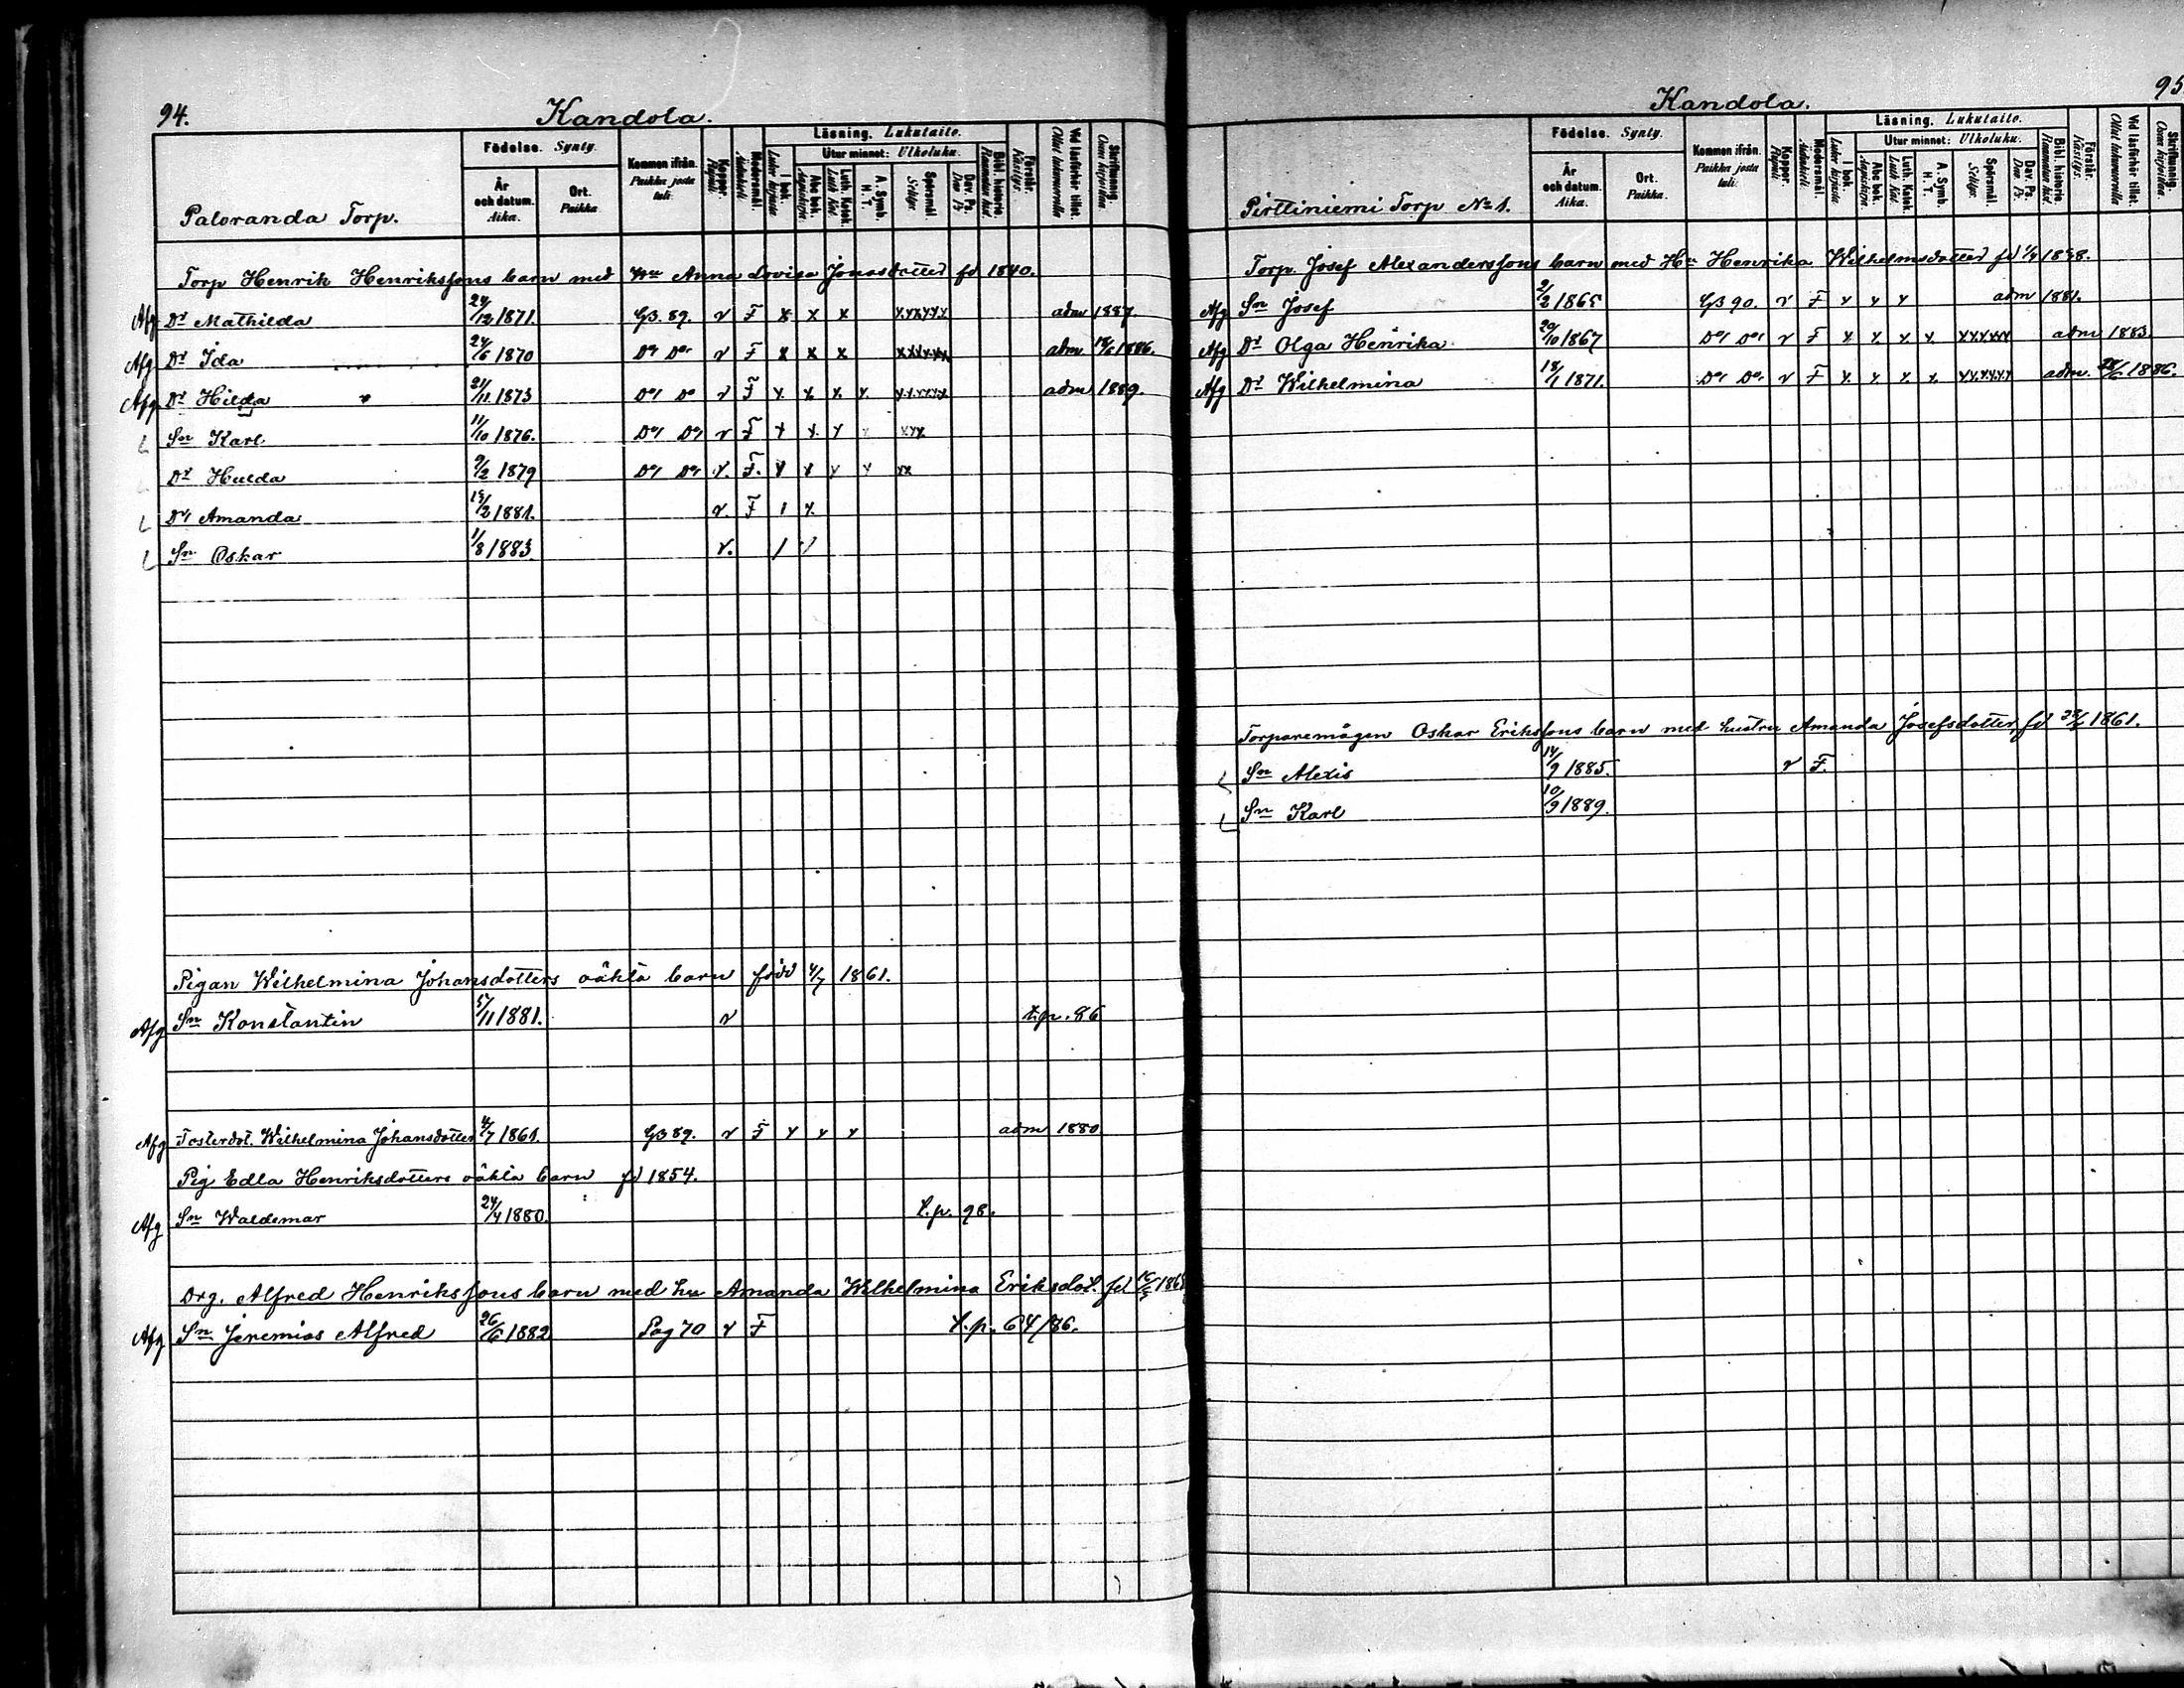 94.
Kandola.
Paloranda Torp.
Födelse. Synty.
År och datum. Aika.
Ort. Paikka
Kommen ifrån. Paikka josta tuli.
Koppor.
Modersmål.
Läsning. Lukutaito.
I bok.
Utur minnet: Ulkoluku.
Abc bok.
Luth. Katek.
A. Symb. H. T.
Spörsmål Selitys.
Dav. Ps.
Bibl. historia.
Förstår. Käsitys.
Vid läsförhör tillst.
Skriftkunnig.
Torp Henrik Henrikssons barn med Hu Anna Lovisa Jonasdotter fd 1840.
Afg Dr Mathilda 24/12 1871. GB. 89. v F x x x xxxxxx adm 1887.
Afg Dr Ida 24/6 1870 Do Do v F x x x xxxxxx adm 1886.
Afg Dr Hilda 21/11 1873 Do Do v F x x x x xxxxxx adm 1889.
Sn Karl 11/10 1876. Do Do v F x x x x xxx
Dr Hulda 9/2 1879 Do Do v. F. x x x x xx
Dr Amanda 15/2 1881. v. F 1 x
Sn Oskar 1/8 1883. v. / /
Pigan Wilhelmina Johansdotters oäkta barn född 4/7 1861.
Afg Sn Konstantin 5/11 1881. v t.p. 86
Afg Fosterdot. Wilhelmina Johansdotter 4/7 1861. GB 89. v F x x x adm 1880
Pig Edla Henriksdotters oäkta barn fd 1854.
Afg Sn Waldemar 24/4 1880. t.p. 98.
Drg. Alfred Henrikssons barn med hu Amanda Wilhelmina Eriksdot. fd
Afg Sn Jeremias Alfred 26/6 1882 Pag 70 v F t.p. 64/86.
95
Kandola.
Pirttiniemi Torp No 1.
Födelse. Synty.
År och datum. Aika.
Ort. Paikka.
Kommen ifrån. Paikka josta tuli.
Koppor.
Modersmål.
Läsning. Lukutaito.
I bok.
Utur minnet: Ulkoluku.
Abc bok.
Luth. Katek.
A. Symb. H. T.
Spörsmål. Selitys.
Dav. Ps.
Bibl. historia.
Förstår. Käsitys.
Vid läsförhör tillst.
Skriftkunnig.
Torp. Josef Alexanderssons barn med Hu Henrika Wilhelmsdotter fd
Afg Sn Josef 2/2 1865 GB 90. v F x x x adm 1881.
Afg Dr Olga Henrika 20/10 1867 Do Do v F x x x x xxxxxx adm 1883.
Afg Dr Wilhelmina 18/1 1871. Do Do v F x x x x xxxxxx adm. 1886.
Torparemågen Oskar Erikssons barn med hustru Amanda Josefsdotter, fd 1861.
Sn Alexis 14/9 1885. v F.
Sn Karl 10/9 1889.